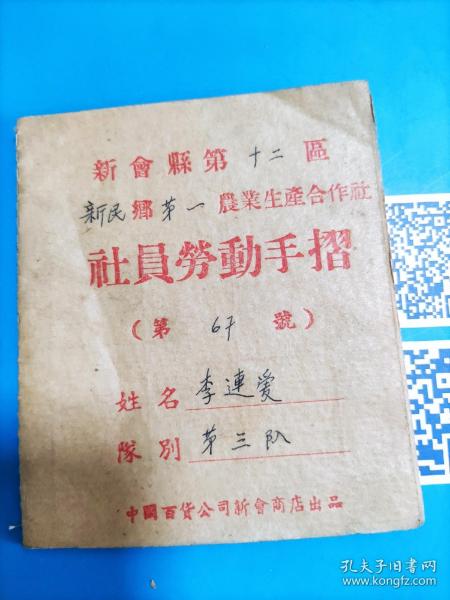 新會縣第十二區
新民鄉第一農業生產合作社
社員勞動手摺
(第 67 號)
姓名李連愛
隊別第三队
中國百貨公司新會商店出品
孔夫子旧书网
www.kongfz.com